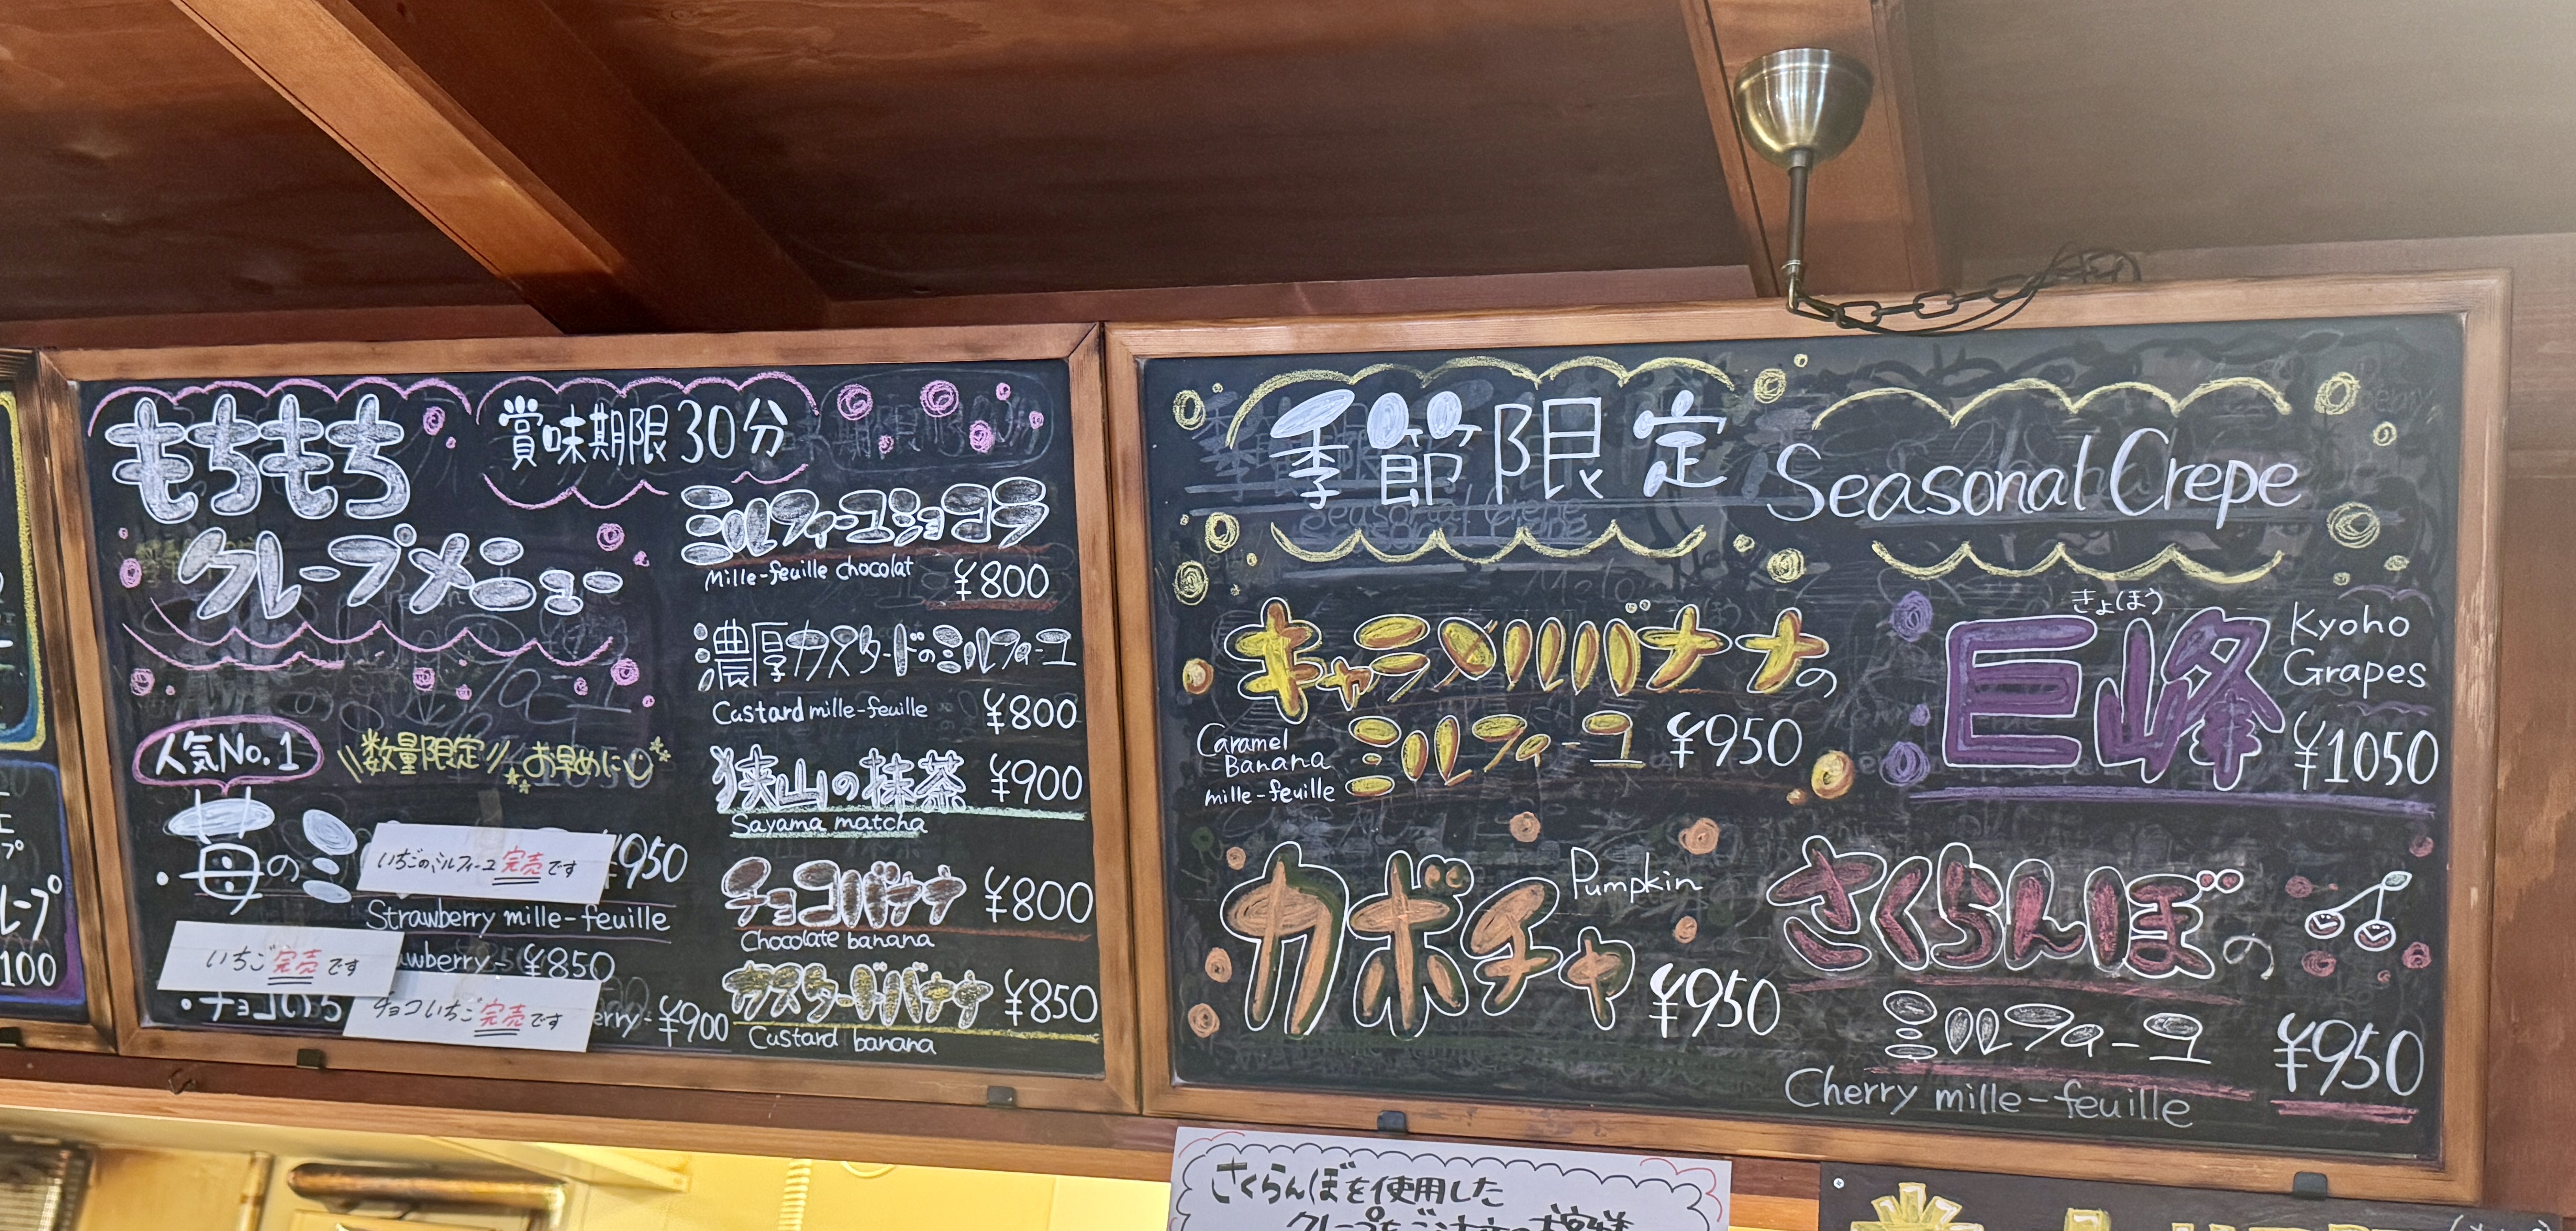 もちもち
クレープメニュー
賞味期限30分
人気No.1
数量限定 お早めに
・苺のミ ¥950
いちごのミルフィーユ完売です
Strawberry mille-feuille
いちご完売です
awberry- ¥850
・チョコいち
チョコいちご完売です
erry- ¥900
ミルフィーユショコラ
Mille-feuille chocolat ¥800
濃厚カスタードのミルフィーユ
Custard mille-feuille ¥800
狭山の抹茶 ¥900
Sayama matcha
チョコバナナ ¥800
Chocolate banana
カスタードバナナ ¥850
Custard banana
季節限定 Seasonal Crepe
キャラメルバナナの
ミルフィーユ ¥950
Caramel
Banana
mille-feuille
きょほう
巨峰
Kyoho
Grapes
¥1050
カボチャ
Pumpkin
¥950
さくらんぼの
ミルフィーユ ¥950
Cherry mille-feuille
さくらんぼを使用した
レープ
100